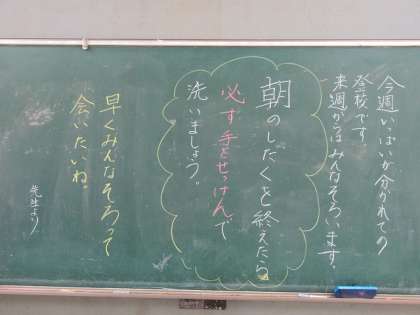 今週いっぱいが分かれての
登校です。
来週からはみんなそろいます。
朝のしたくを終えたら
必ず手をせっけんで
洗いましょう。
早くみんなそろって
会いたいね。
先生より